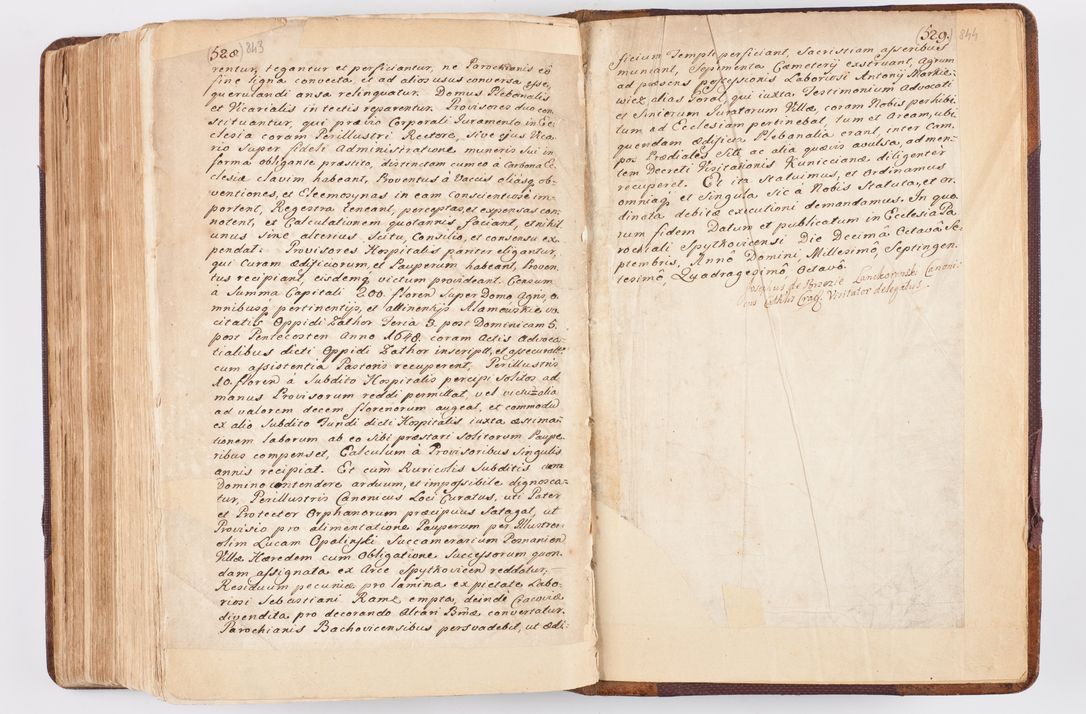 (528) 843
rentur, tegantur et perficiantur, ne Parochianis eô
fine ligna convecta, et ad alios usus conversa esse,
querulandi ansa relinquatur. Domus Plebanalis
et Vicarialis in tectis reparentur. Provisores duo con,
stituantur, qui prævio Corporali Juramento in Ec,
clesia coram Perillustri Rectore, sive ejus Vica,
rio super fideli Administratione muneris sui in
forma obligante præstito, distinctam cum eo à Carbona Ec,
clesiæ clavim habeant, Proventus à Vaccis aliasq, ob,
ventiones, et Eleemosynas in eam conscientiosè im,
portent, Regestra teneant, percepta, et expensas con,
notent, et Calculationem quotannis faciant, et nihil
unus sine alterius scitu, Consilio, et consensu ex,
pendat. Provisores Hospitalis pariter eligantur,
qui Curam ædificiorum, et Pauperum habeant, Proven,
tus recipiant, eisdemq victum provideant. Censum
à Summa Capitali 200. floren Super Domo Agris, o,
mnibusq pertinentijs, et attinentijs vo,
citatis Oppidi Zathor Feria 3. post Dominicam 5.
post Pentecosten Anno 1648. coram Actis Advoca,
tialibus dicti Oppidi Zathor inscript, et assecurat
cum assistentia Pastoris recuperent, Perillustris
10. floren à Subdito Hospitalis percipi solitos ad
manus Provisorum reddi permittat, vel victualia
ad valorem decem florenorum augeat, et commodu
ex alio Subdito Fundi dicti Hospitalis iuxta æstima,
tionem laborum ab eo sibi præstari solitorum Paupe,
ribus compenset, Calculum à Provisoribus singulis
annis recipiat. Et cum Ruricolis Subditis cum
Domino contendere arduum, et impossibile dignosca,
tur, Perillustris Canonicus Loci Curatus, uti Pater
et Protector Orphanorum præcipuus satagat, ut
Provisio pro alimentatione Pauperum per Illustrem
olim Lucam Opalinski Succamerarium Posnanien
Villæ Hæredem cum Obligatione Successorum quon,
dam assignata ex Arce Spytkovicen reddatur.
Residuum pecuniæ pro lamina ex pietate Labo,
riosi Sebastiani Ramz empta, deinde Cracoviæ
divendita, pro decorando Altari Bmæ convertatur.
Parochianis Bachovicensibus persvadebit, ut ædi:
(529) 844
ficium Templi perficiant, Sacristiam asseribus
muniant, Sepimenta Cæmeterij exstruant, Agrum
ad præsens possessionis Laboriosi Antonij Markie,
wicz, alias Goral, qui iuxta Testimonium Advocati
et Seniorum Juratorum Villæ, coram Nobis perhibi,
tum ad Ecclesiam pertinebat, tum et Aream, ubi
quondam ædificia Plebanalia erant, inter Cam,
pos Prædiales siti, ac alia quævis avulsa, ad men,
tem Decreti Visitationis Kuniccianæ diligenter
recuperet. Et ita statuimus, et ordinamus
omniaq, et singula sic à Nobis statuta, et or,
dinata debitæ executioni demandamus. In quo,
rum fidem Datum et publicatum in Ecclesia Pa,
rochiali Spytkovicensi Die Decimâ Octavâ Se,
ptembris, Anno Domini, Millesimô, Septingen,
tesimô, Quadragesimô Octavô.
Josephus de Brzezie Lanckoronski Canoni,
cus Cathlis Crac. Visitator delegatus.